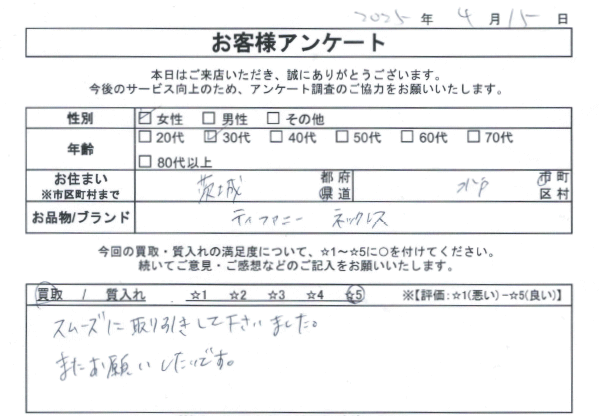 2025 年 4 月 15 日
お客様アンケート
本日はご来店いただき、誠にありがとうございます。
今後のサービス向上のため、アンケート調査のご協力をお願いいたします。
性別 ☑ 女性 □ 男性 □ その他
年齢 □ 20代 ☑ 30代 □ 40代 □ 50代 □ 60代 □ 70代
□ 80代以上
お住まい 茨城 都 府 水戸 市 町
※市区町村まで 県 道 区 村
お品物/ブランド ティファニー ネックレス
今回の買取・質入れの満足度について、☆1～☆5に○を付けてください。
続いてご意見・ご感想などのご記入をお願いいたします。
買取 / 質入れ ☆1 ☆2 ☆3 ☆4 ☆5 ※【評価:☆1(悪い)－☆5(良い)】
スムーズに取り引きして下さいました。
またお願いしたいです。